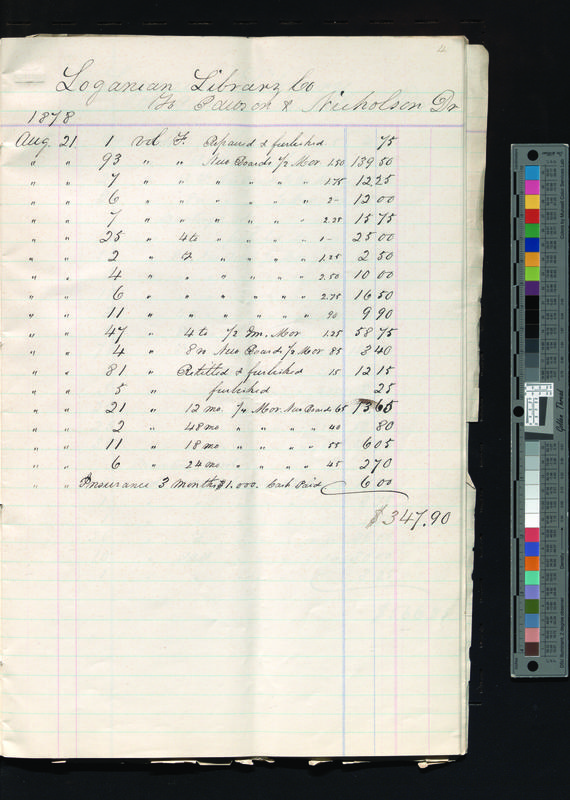 4
Loganian Library Co
To Pawson & Nicholson Dr
1878
Aug 21 1 vol F. Repaired & furbished 75
" " 93 " " New Boards 1/2 Mor 1.50 139 50
" " 7 " " " " " " 1.75 12 25
" " 6 " " " " " " 2- 12 00
" " 7 " " " " " " 2.25 15 75
" " 25 " 4to " " " " 1- 25 00
" " 2 " " " " " 1.25 2 50
" " 4 " " " " " " 2.50 10 00
" " 6 " " " " " " 2.75 16 50
" " 11 " " " " " " 90 9 90
" " 47 " 4to 1/2 Im. Mor 1.25 58 75
" " 4 " 8vo New Boards 1/2 Mor 85 3 40
" " 81 " Retitled & furbished 15 12 15
" " 5 " furbished 25
" " 21 " 12mo. 1/2 Mor. New Boards 65 13 65
" " 2 " 48mo " " " " 40 80
" " 11 " 18mo " " " " 55 6 05
" " 6 " 24mo " " " " 45 2 70
" " Insurance 3 months $1.000. Cash Paid 6 00
$347.90
Golden Thread